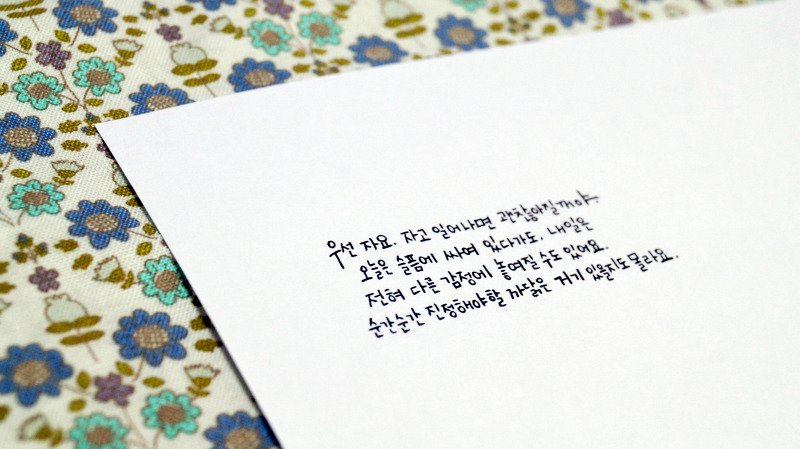 우선 자요. 자고 일어나면 괜찮아질꺼야.
오늘은 슬픔에 싸여 있다가도, 내일은
전혀 다른 감정에 놓여질 수도 있어요.
순간순간 진정해야할 까닭은 거기 있을지도 몰라요.